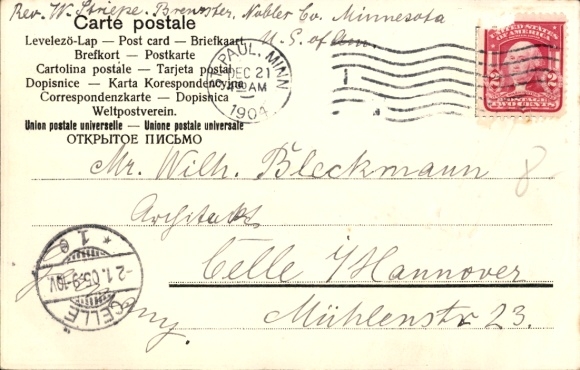 Rev. W. Striepe. Brewster, Nobler Co. Minnesota
U. S. of Am.
Carte postale
Levelezö-Lap — Post card — Briefkaart
Brefkort — Postkarte
Cartolina postale — Tarjeta postal
Dopisnice - Karta Korespondencyjna
Correspondenzkarte — Dopisnica
Weltpostverein.
Union postale universelle — Unione postale universale
ОТКРЫТОЕ ПИСЬМО
ST. PAUL, MINN
DEC 21
AM
1904
UNITED STATES
2 2
POSTAGE
TWO CENTS
Mr. Wilh. Bleckmann
8
Architekt
Celle i/Hannover
Mühlenstr. 23.
CELLE
* 1 e
-2.1.05.9-10V.